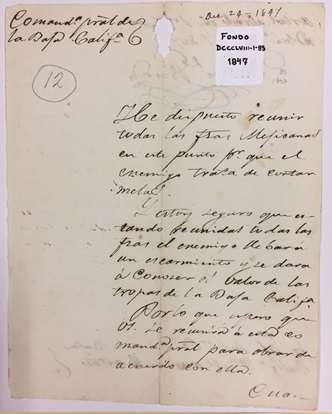 Dec. 24 - 1847
Comandª gral de
la Baja Califª
FONDO
DCCCLVIII-1-85
1847
12
He dispuesto reunir
todas las fzas Mejicanas
en este punto pr. que el
enemigo trata de cortar
melas.
Y estoy seguro que es-
tando reunidas todas las
fzas el enemigo llebara
un escarmiento y se dara
á conoser el balor de las
tropas de la Baja Califª
Por lo que espero que
V. se reunirá á esta co
mandª gral para obrar de
acuerdo con ella.